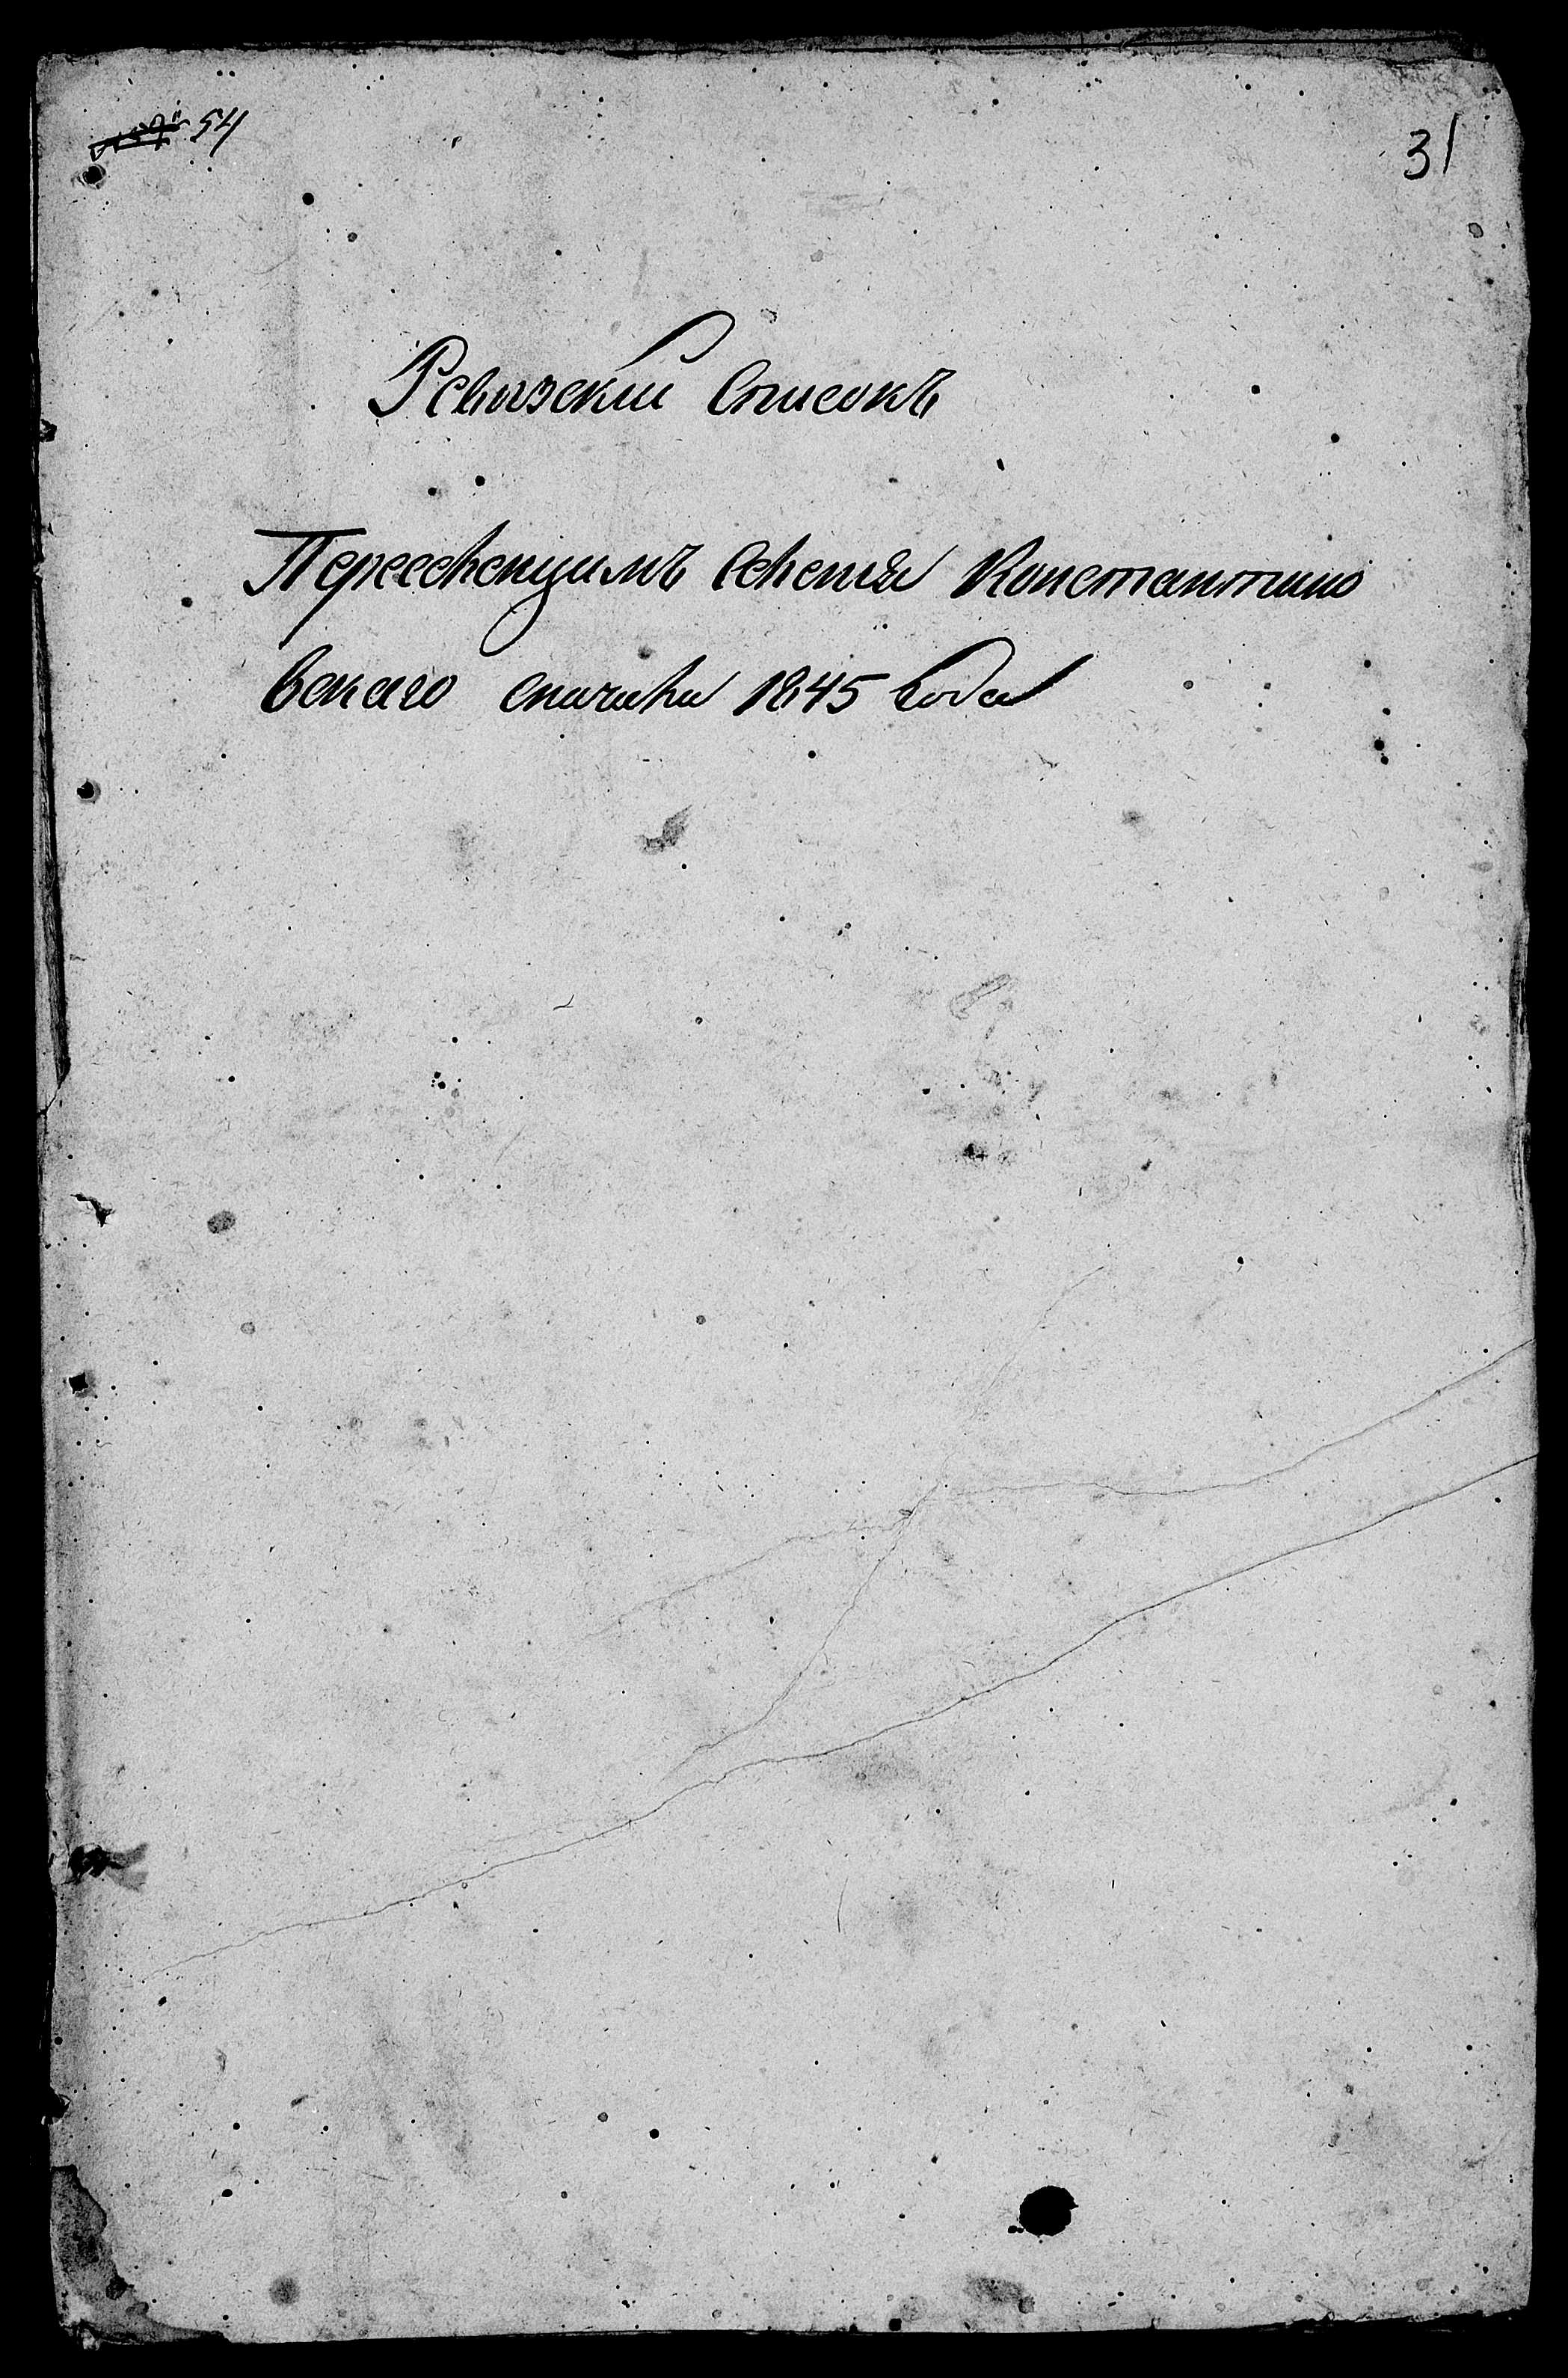 54
31
Ревизскій Списокъ
Переселенцамъ Селенія Константино
вскаго сначала 1845 года